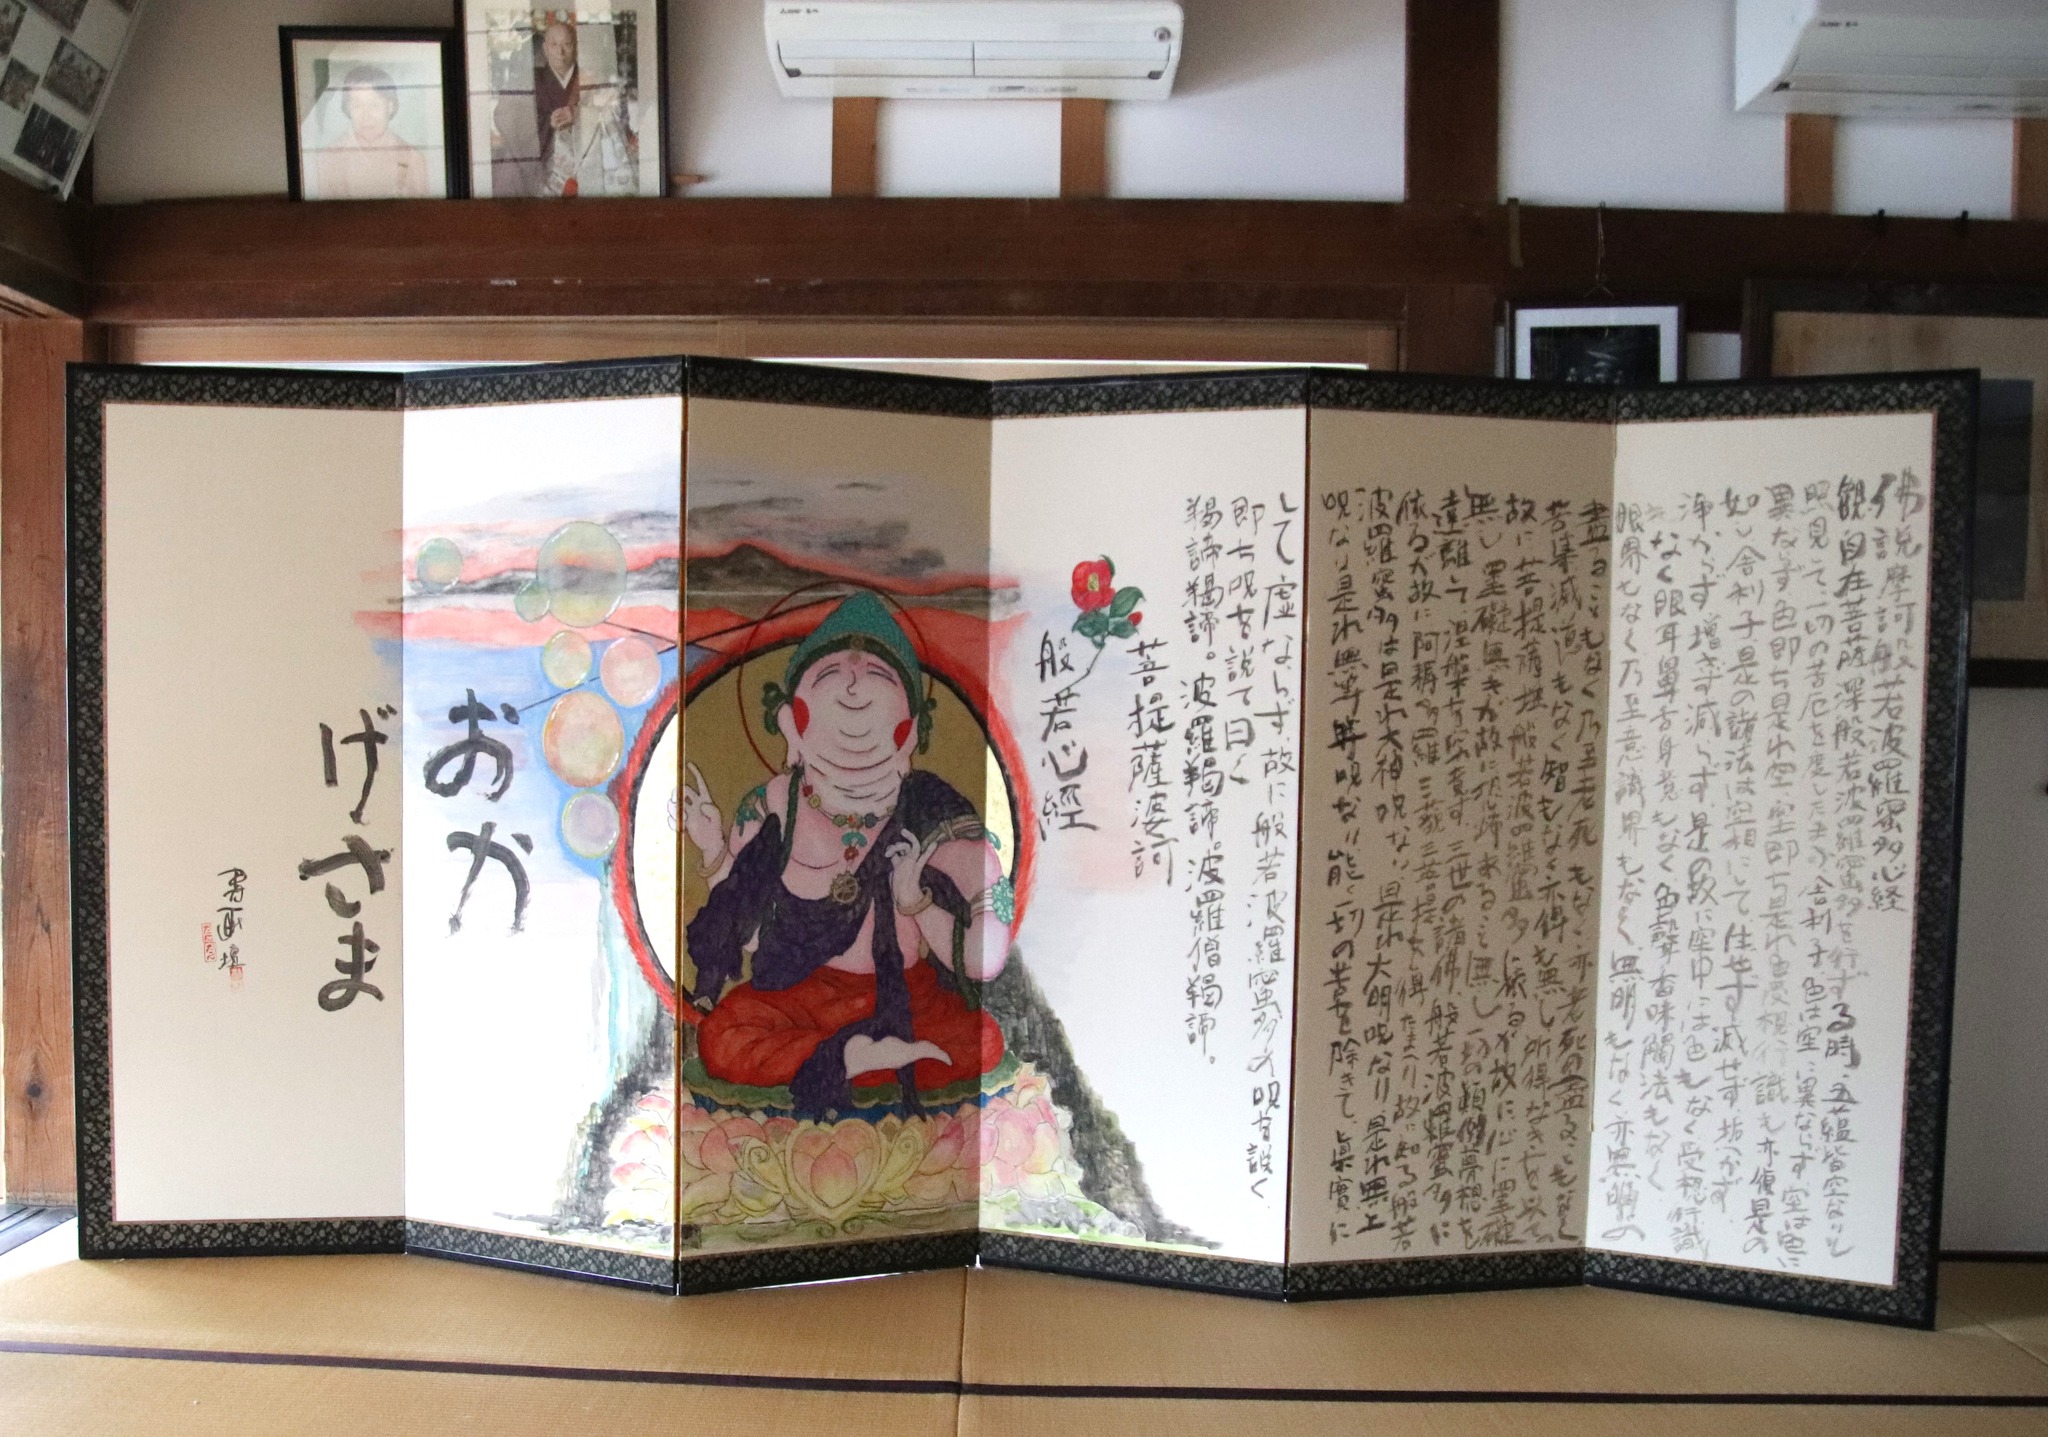 佛説摩訶般若波羅蜜多心経
観自在菩薩深般若波羅蜜多を行ずる時、五蘊皆空なりと
照見して、一切の苦厄を度したまう。舎利子色は空に異ならず、空は色に
異ならず色即ち是れ空、空即ち是れ色受想行識も亦復是の
如し、舎利子是の諸法は空相にして生ぜず滅せず、垢つかず
浄からず、増さず減らず、是の故に空中には色もなく受想行識
もなく眼耳鼻舌身意もなく色聲香味觸法もなく
眼界もなく乃至意識界もなく無明もなく亦無明の
盡ることもなく乃至老死もなく亦老死の盡ることもなく
苦集滅道もなく智もなく亦得も無し、所得なきを以ての
故に菩提薩埵般若波羅蜜多に依るが故に心に罣礙
無し罣礙無きが故に恐怖あること無し一切の顛倒夢想を
遠離して涅槃を究竟す。三世の諸佛、般若波羅蜜多に
依るが故に阿耨多羅三藐三菩提を得たまえり故に知る般若
波羅蜜多は是れ大神呪なり是れ大明呪なり是れ無上
呪なり是れ無等等呪なり能く一切の苦を除きて、眞實に
して虚ならず、故に般若波羅蜜多の呪を説く
即ち呪を説て曰く
羯諦羯諦。波羅羯諦。波羅僧羯諦。
菩提薩婆訶
般若心經
おか
げさま